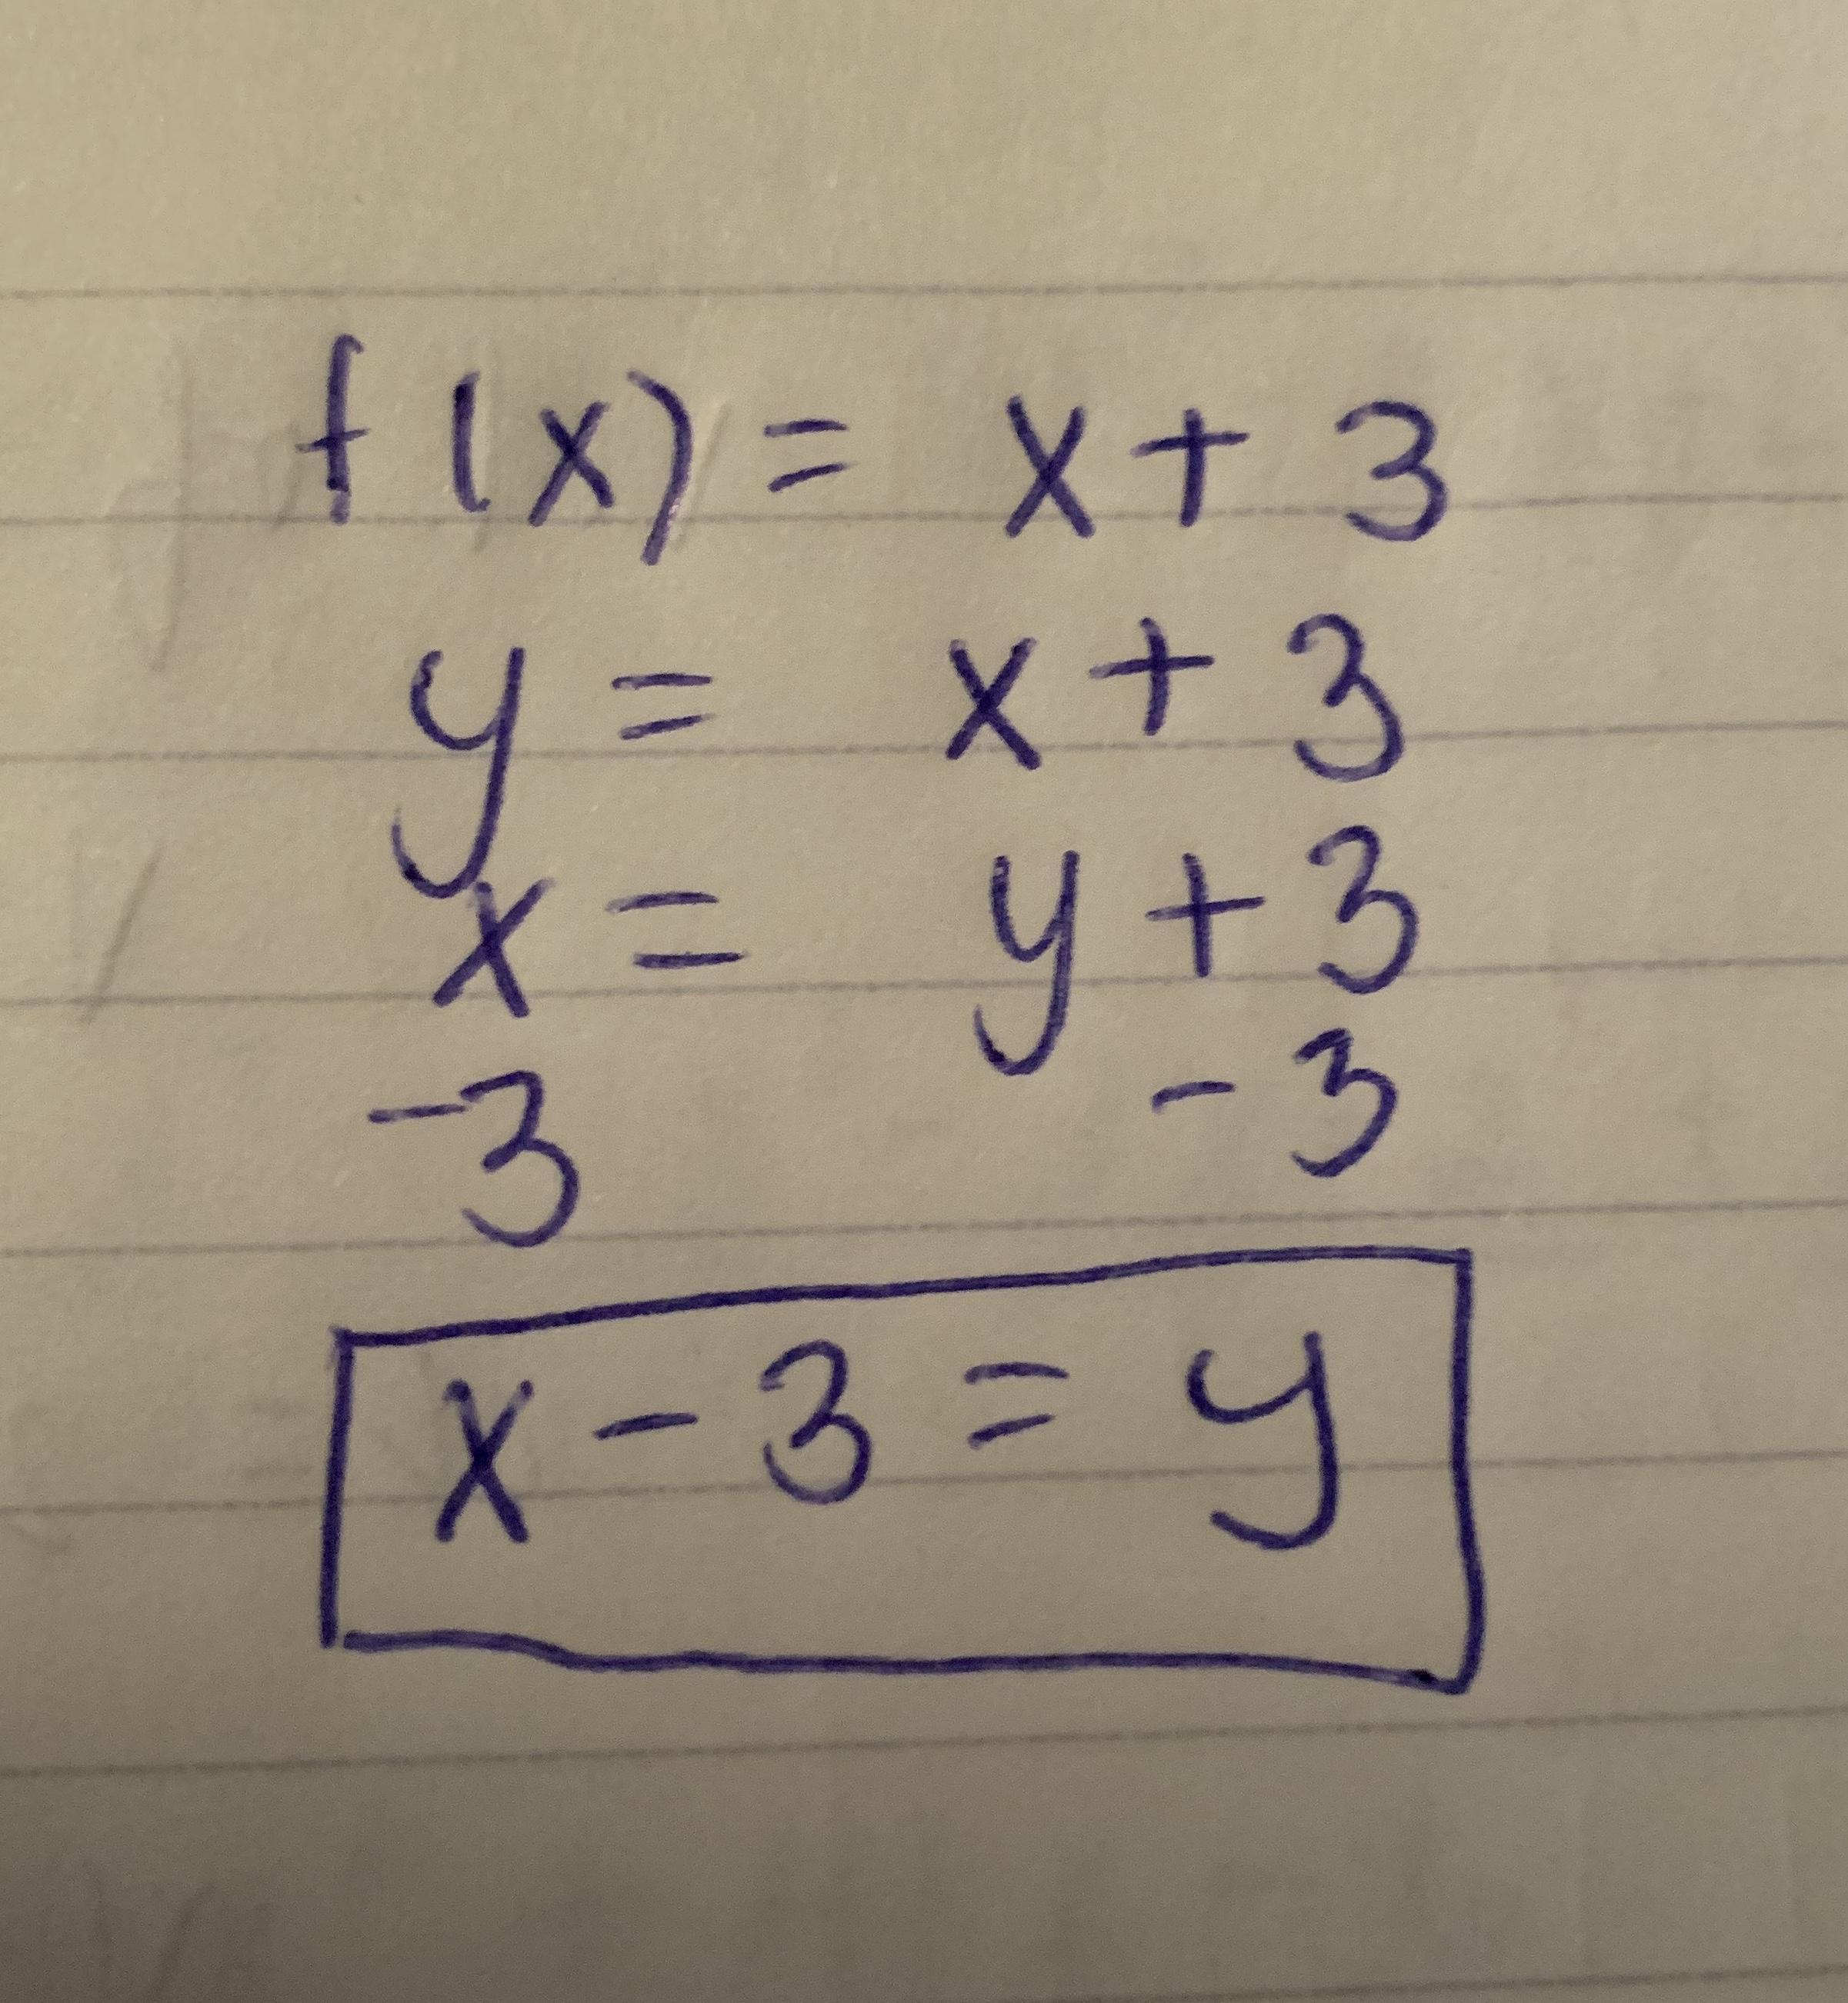 f(x) = x + 3
y = x + 3
x = y + 3
-3 - 3
x - 3 = y